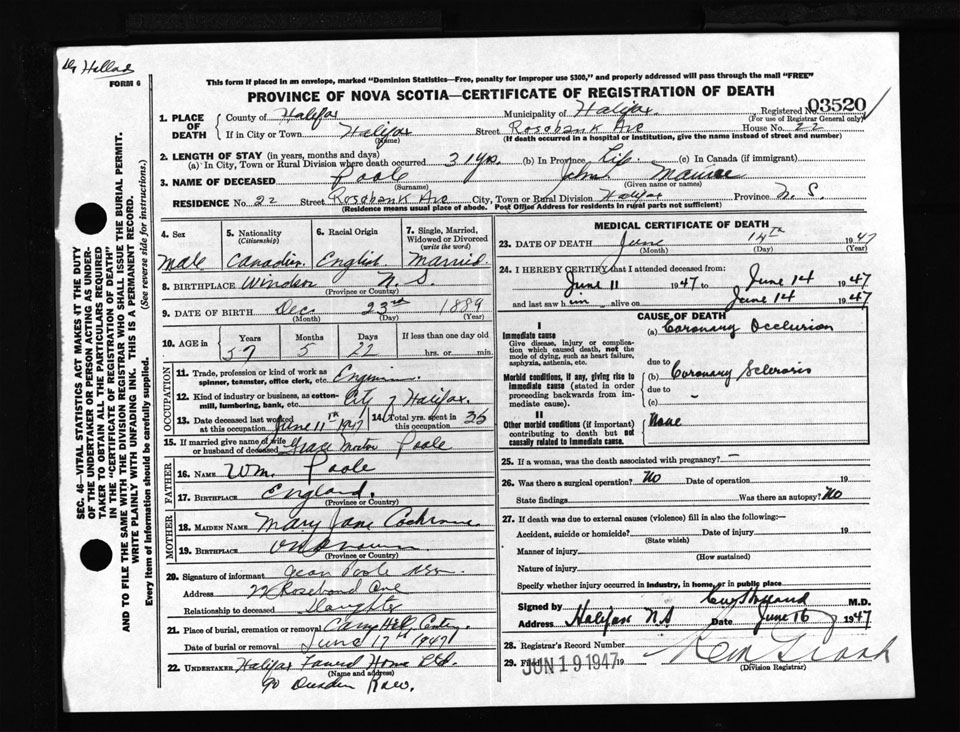 Dr Holland
FORM 6
This form if placed in an envelope, marked "Dominion Statistics—Free, penalty for improper use $300," and properly addressed will pass through the mail "FREE"
PROVINCE OF NOVA SCOTIA—CERTIFICATE OF REGISTRATION OF DEATH
Registered No. 03520
(For use of Registrar General only)
1. PLACE OF DEATH
County of Halifax Municipality of Halifax
If in City or Town Halifax Street Rosebank Ave House No. 22
(Name) (If death occurred in a hospital or institution, give the name instead of street and number)
2. LENGTH OF STAY (in years, months and days)
(a) In City, Town or Rural Division where death occurred 31 yrs. (b) In Province Life (c) In Canada (if immigrant)
3. NAME OF DECEASED Poole John
(Surname) (Given name or names)
RESIDENCE No. 22 Street Rosebank Ave City, Town or Rural Division Halifax Province N. S.
(Residence means usual place of abode. Post Office Address for residents in rural parts not sufficient)
4. Sex Male
5. Nationality (Citizenship) Canadian
6. Racial Origin English
7. Single, Married, Widowed or Divorced (write the word) Married
8. BIRTHPLACE Windsor N. S.
(Province or Country)
9. DATE OF BIRTH Dec. 23rd 1889
(Month) (Day) (Year)
10. AGE in Years 57 Months 5 Days 22 If less than one day hrs. or min.
OCCUPATION
11. Trade, profession or kind of work as spinner, teamster, office clerk, etc.
12. Kind of industry or business, as cotton-mill, lumbering, bank, etc. City of Halifax.
13. Date deceased last worked at this occupation June 11th 1947
14. Total yrs. spent in this occupation 35
15. If married give name of wife or husband of deceased Grace Poole
FATHER
16. NAME Wm. Poole
17. BIRTHPLACE England.
(Province or Country)
MOTHER
18. MAIDEN NAME Mary Jane Cochrane
19. BIRTHPLACE Unknown
(Province or Country)
20. Signature of informant Jean Poole
Address 22 Rosebank Ave
Relationship to deceased Daughter
21. Place of burial, cremation or removal Camp Hill Cemetery.
Date of burial or removal June 17th 1947
22. UNDERTAKER Halifax Funeral Home Ltd.
90 Dresden Row.
MEDICAL CERTIFICATE OF DEATH
23. DATE OF DEATH June 14th 1947
(Month) (Day) (Year)
24. I HEREBY CERTIFY that I attended deceased from:
June 11 1947 to June 14 1947
and last saw him alive on June 14 1947
CAUSE OF DEATH
I
Immediate cause (a) Coronary Occlusion
Give disease, injury or complication which caused death, not the mode of dying, such as heart failure, asphyxia, asthenia, etc.
due to
Morbid conditions, if any, giving rise to immediate cause (stated in order proceeding backwards from immediate cause).
(b) Coronary Sclerosis
due to
(c) -
II
Other morbid conditions (if important) contributing to death but not causally related to immediate cause.
None
25. If a woman, was the death associated with pregnancy? —
26. Was there a surgical operation? No Date of operation 19
State findings Was there an autopsy? No
27. If death was due to external causes (violence) fill in also the following:—
Accident, suicide or homicide? Date of injury 19
(State which)
Manner of injury
(How sustained)
Nature of injury
Specify whether injury occurred in industry, in home, or in public place
Signed by Holland M.D.
Address Halifax N.S Date June 16 1947
28. Registrar's Record Number
29. Filed JUN 19 1947 19
(Division Registrar)
SEC. 46—VITAL STATISTICS ACT MAKES IT THE DUTY
OF THE UNDERTAKER OR PERSON ACTING AS UNDER-
TAKER TO OBTAIN ALL THE PARTICULARS REQUIRED
IN THE "CERTIFICATE OF REGISTRATION OF DEATH"
AND TO FILE THE SAME WITH THE DIVISION REGISTRAR WHO SHALL ISSUE THE BURIAL PERMIT.
WRITE PLAINLY WITH UNFADING INK. THIS IS A PERMANENT RECORD.
Every item of Information should be carefully supplied. (See reverse side for instructions.)